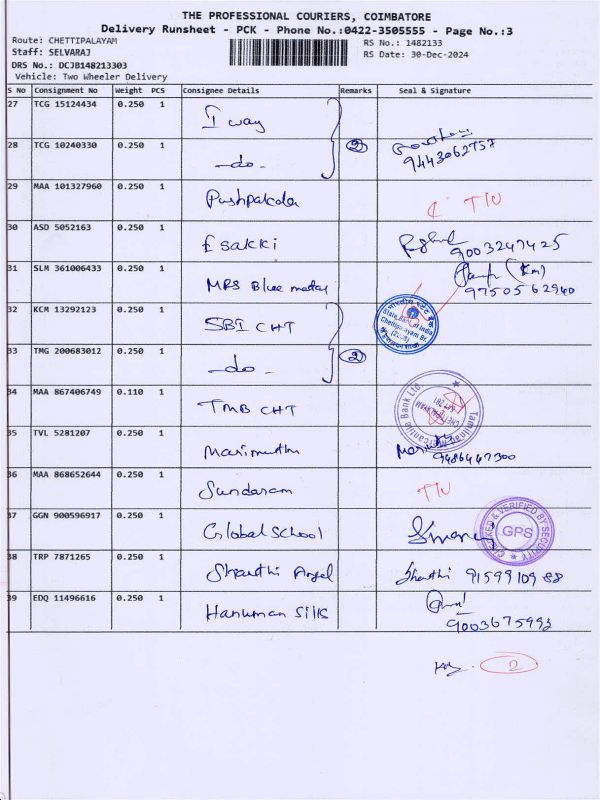 THE PROFESSIONAL COURIERS, COIMBATORE
Delivery Runsheet - PCK - Phone No.:0422-3505555 - Page No.:3
Route: CHETTIPALAYAM
Staff: SELVARAJ
DRS No.: DCJB148213303
Vehicle: Two Wheeler Delivery
RS No.: 1482133
RS Date: 30-Dec-2024
S No Consignment No Weight PCS Consignee Details Remarks Seal & Signature
27 TCG 15124434 0.250 1 I way
28 TCG 10240330 0.250 1 -do- 2 9443062757
29 MAA 101327960 0.250 1
30 ASD 5052163 0.250 1 Esakki 9003247425
31 SLM 361006433 0.250 1 MRS Blue (Km) 9750562940
32 KCM 13292123 0.250 1 SBI CHT State Bank of India Chettipalayam Br.
33 TMG 200683012 0.250 1 -do- 2
34 MAA 867406749 0.110 1 TMB CHT Tamilnad Mercantile Bank Ltd. CHETTIPALAYAM
35 TVL 5281207 0.250 1 Marimuthu 9486447300
36 MAA 868652644 0.250 1 Sundaram
37 GGN 900596917 0.250 1 Global School CHECKED & VERIFIED BY SECURITY GPS
38 TRP 7871265 0.250 1 Shanthi Angel Shanthi 9159910988
39 EDQ 11496616 0.250 1 Hanuman Silks 9003675993
2